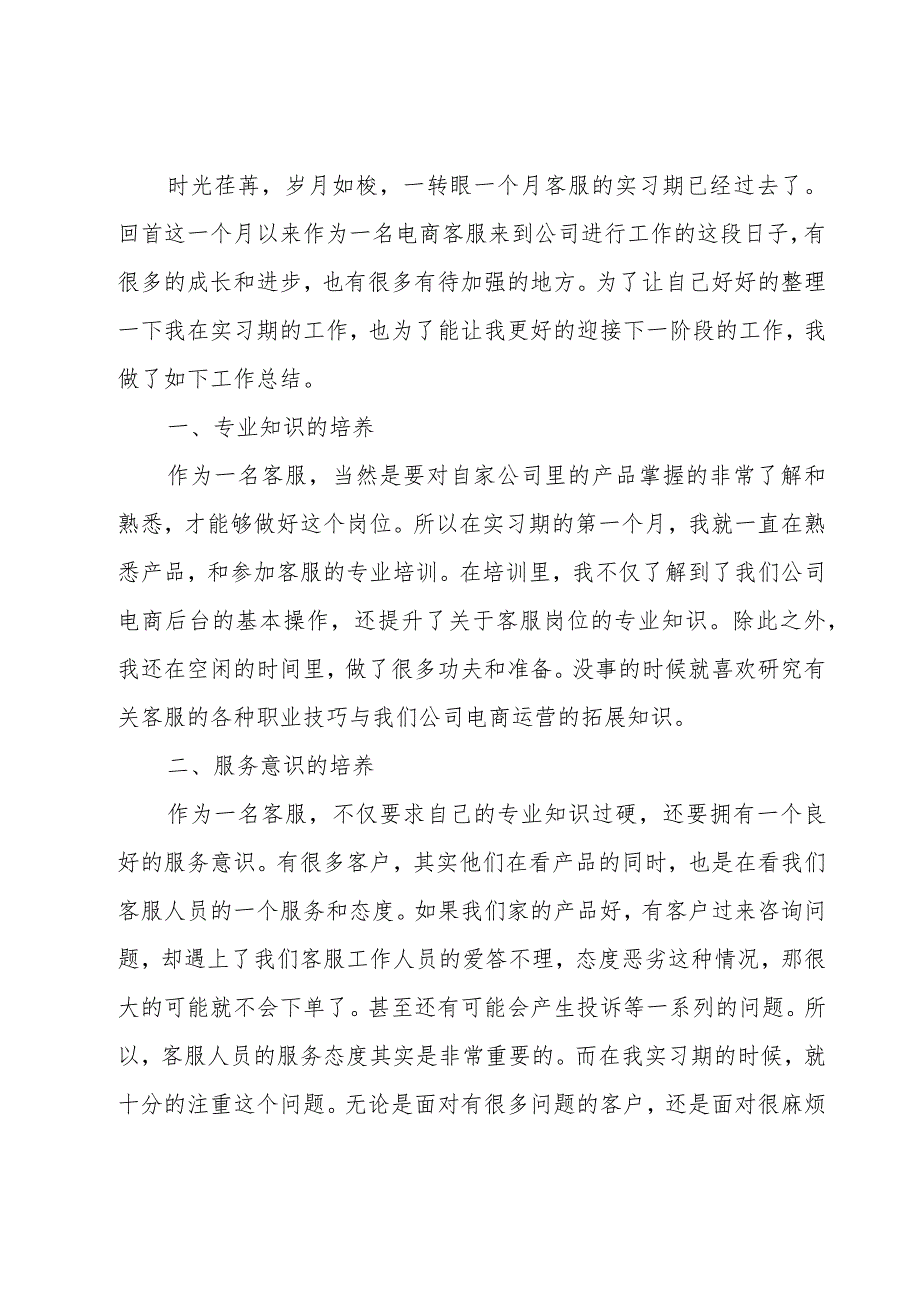 时光荏苒，岁月如梭，一转眼一个月客服的实习期已经过去了。
回首这一个月以来作为一名电商客服来到公司进行工作的这段日子，有
很多的成长和进步，也有很多有待加强的地方。为了让自己好好的整理
一下我在实习期的工作，也为了能让我更好的迎接下一阶段的工作，我
做了如下工作总结。
一、专业知识的培养
作为一名客服，当然是要对自家公司里的产品掌握的非常了解和
熟悉，才能够做好这个岗位。所以在实习期的第一个月，我就一直在熟
悉产品，和参加客服的专业培训。在培训里，我不仅了解到了我们公司
电商后台的基本操作，还提升了关于客服岗位的专业知识。除此之外，
我还在空闲的时间里，做了很多功夫和准备。没事的时候就喜欢研究有
关客服的各种职业技巧与我们公司电商运营的拓展知识。
二、服务意识的培养
作为一名客服，不仅要求自己的专业知识过硬，还要拥有一个良
好的服务意识。有很多客户，其实他们在看产品的同时，也是在看我们
客服人员的一个服务和态度。如果我们家的产品好，有客户过来咨询问
题，却遇上了我们客服工作人员的爱答不理，态度恶劣这种情况，那很
大的可能就不会下单了。甚至还有可能会产生投诉等一系列的问题。所
以，客服人员的服务态度其实是非常重要的。而在我实习期的时候，就
十分的注重这个问题。无论是面对有很多问题的客户，还是面对很麻烦